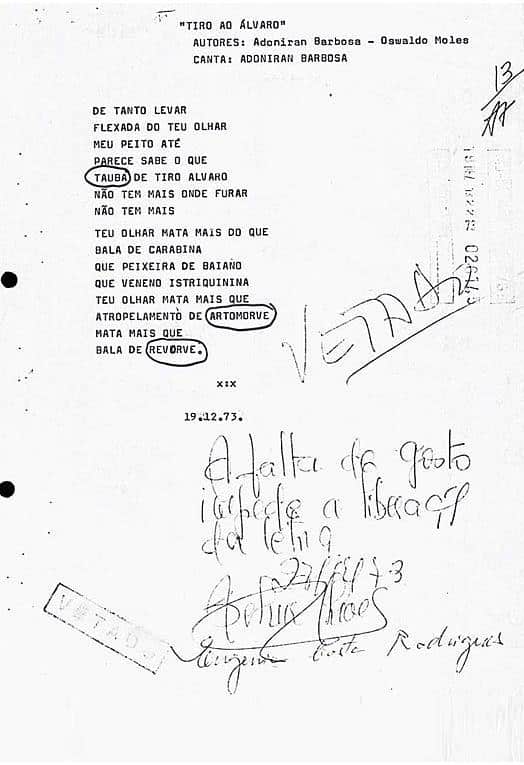 "TIRO AO ÁLVARO"
AUTORES: Adoniran Barbosa - Oswaldo Moles
CANTA: ADONIRAN BARBOSA
13
DE TANTO LEVAR
FLEXADA DO TEU OLHAR
MEU PEITO ATÉ
PARECE SABE O QUE
TAUBA DE TIRO ALVARO
NÃO TEM MAIS ONDE FURAR
NÃO TEM MAIS
TEU OLHAR MATA MAIS DO QUE
BALA DE CARABINA
QUE PEIXEIRA DE BAIANO
QUE VENENO ISTRIQUININA
TEU OLHAR MATA MAIS QUE
ATROPELAMENTO DE ARTOMORVE
MATA MAIS QUE
BALA DE REVORVE.
VETADA
x:x
19.12.73.
A falta de gosto
impede a liberação
da letra
VETADO
Costa Rodrigues